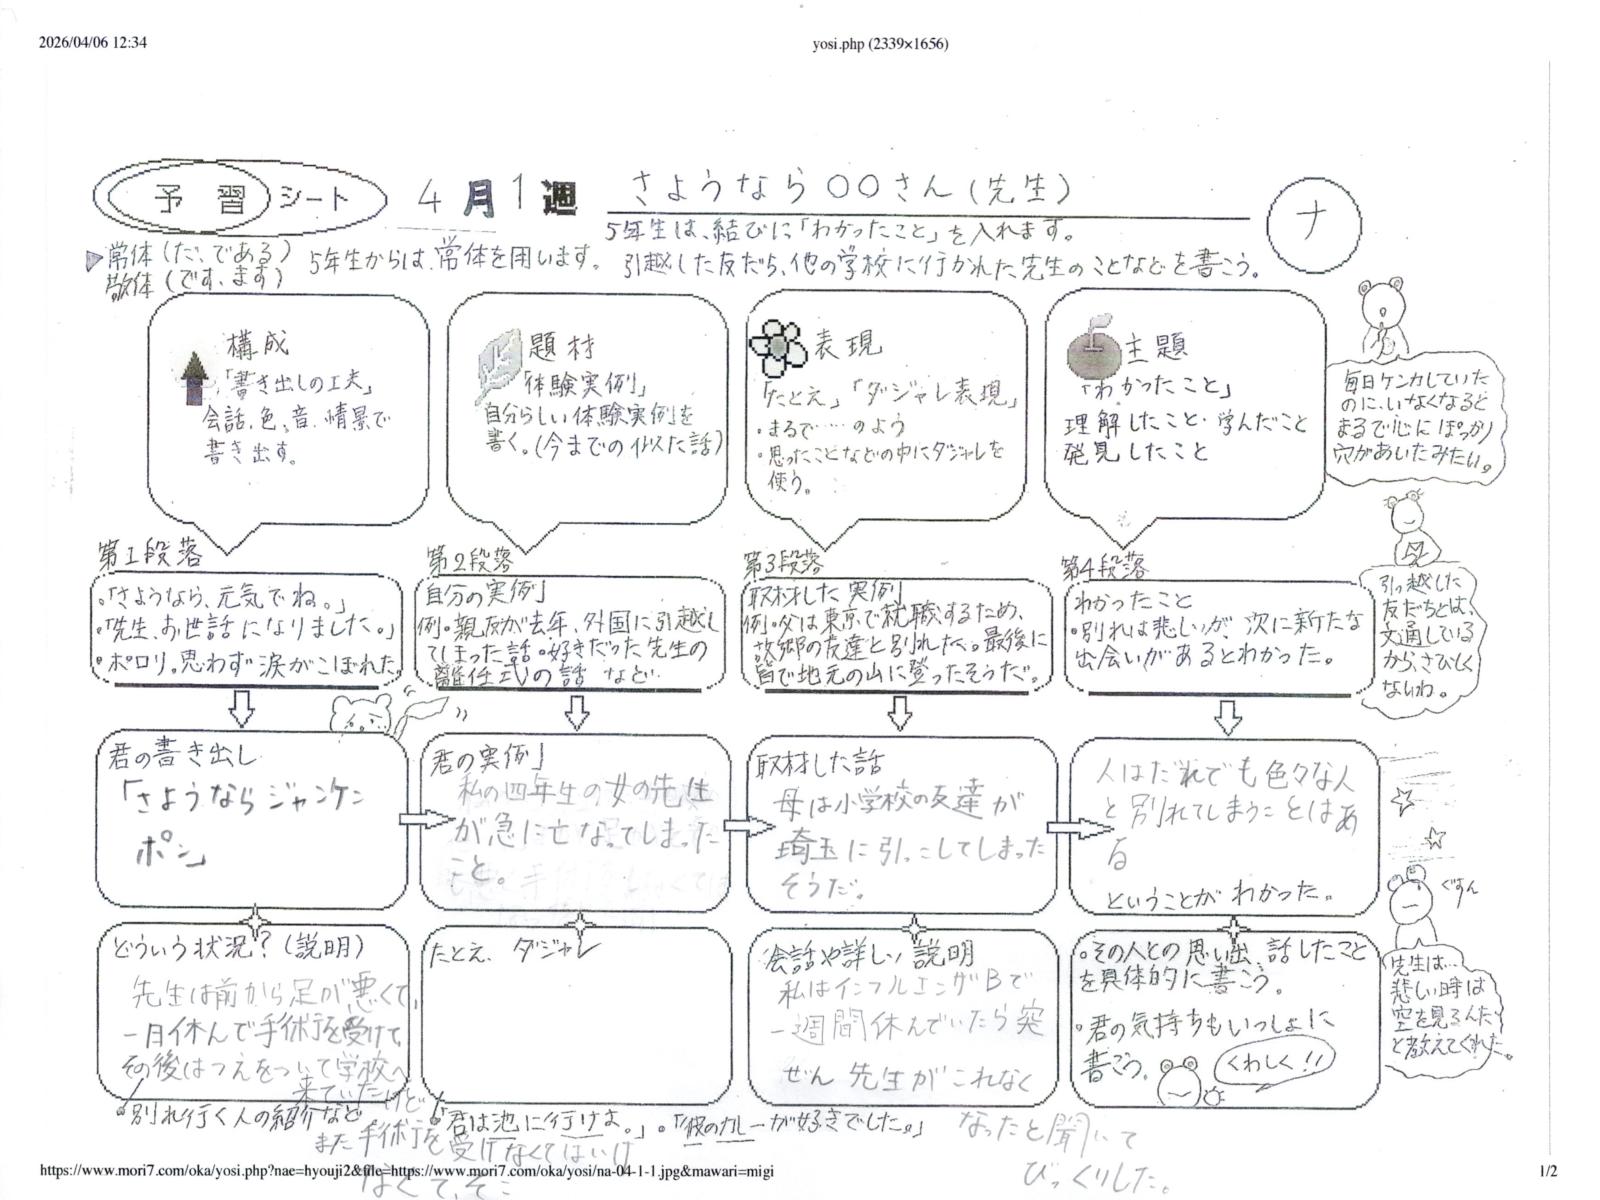 2026/04/06 12:34
yosi.php (2339×1656)
予習シート
4月1週
さようなら○○さん(先生)
ナ
5年生は、結びに「わかったこと」を入れます。
▶常体(だ、である)
敬体(です、ます)
5年生からは、常体を用います。
引越した友だち、他の学校に行かれた先生のことなどを書こう。
構成
「書き出しの工夫」
会話、色、音、情景で
書き出す。
題材
「体験実例」
自分らしい体験実例を
書く。(今までの似た話)
表現
「たとえ」「ダジャレ表現」
・まるで……のよう
・思ったことなどの中にダジャレを
使う。
主題
「わかったこと」
理解したこと・学んだこと
発見したこと
毎日ケンカしていた
のに、いなくなると
まるで心にぽっかり
穴があいたみたい。
第1段落
。「さようなら、元気でね。」
。「先生、お世話になりました。」
。ポロリ。思わず涙がこぼれた
第2段落
自分の実例」
例。親友が去年、外国に引越し
てしまった話。好きだった先生の
離任式の話 など
第3段落
取材した実例」
例。父は東京で就職するため、
故郷の友達と別れた。最後に
皆で地元の山に登ったそうだ。
第4段落
わかったこと
。別れは悲しいが、次に新たな
出会いがあるとわかった。
引っ越した
友だちとは、
文通している
から、さびしく
ないわ。
君の書き出し
「さようならジャンケン
ポン」
君の実例」
私の四年生の女の先生
が急に亡なってしまった
こと。
取材した話
母は小学校の友達が
埼玉に引っこしてしまった
そうだ。
人はだれでも色々な人
と別れてしまうことはあ
る
ということがわかった。
ぐすん
どういう状況?(説明)
先生は前から足が悪くて、
一月休んで手術を受けて
その後はつえをついて学校へ
来ていたけど
また手術を受けなくてはいけ
なくて、そこ
。別れ行く人の紹介など
たとえ、ダジャレ
「君は池に行けよ。」。「彼のカレーが好きでした。」
会話や詳しい説明
私はインフルエンザBで
一週間休んでいたら突
ぜん 先生がこれなく
なったと聞いて
びっくりした。
。その人との思い出、話したこと
を具体的に書こう。
・君の気持ちもいっしょに
書こう。
くわしく!!
先生は…
悲しい時は
空を見るんだ
と教えてくれた。
https://www.mori7.com/oka/yosi.php?nae=hyouji2&file=https://www.mori7.com/oka/yosi/na-04-1-1.jpg&mawari=migi
1/2